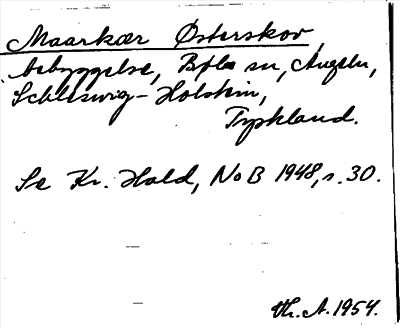 Maarkær Østerskov,
bebyggelse, Bøl sn, Angeln,
Schleswig-Holstein,
Tyskland.
Se Kr. Hald, NoB 1948, s. 30.
Vh. A. 1954.